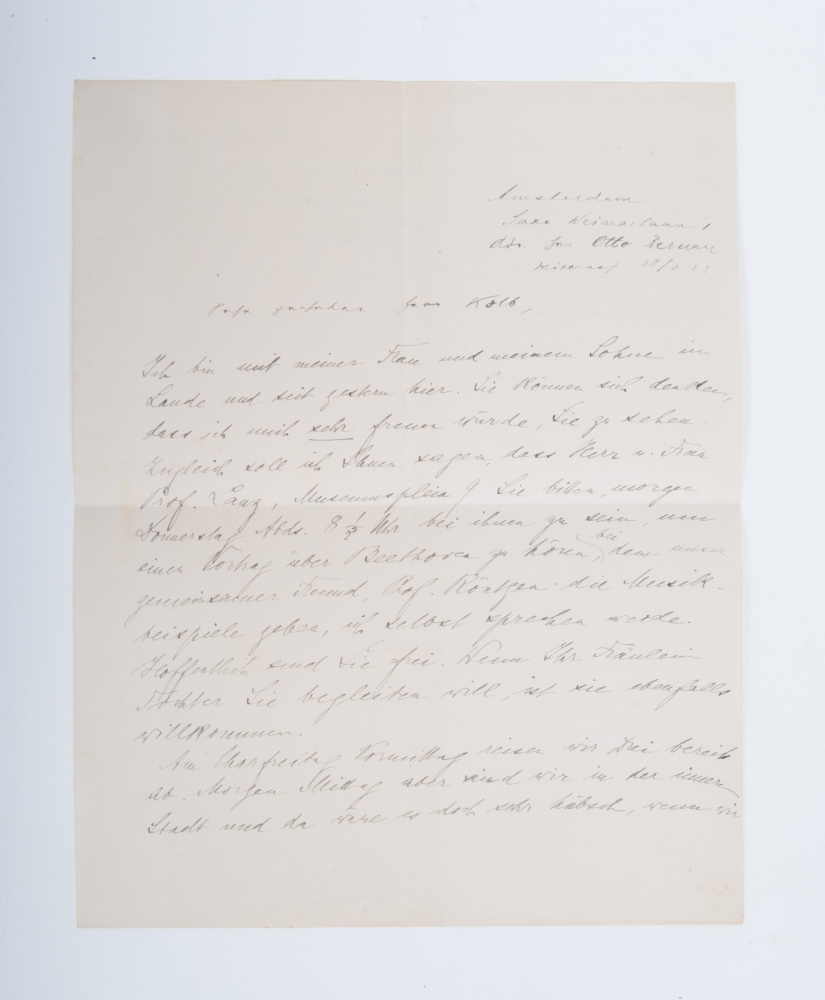 Amsterdam
Saxe Weimarlaan 1
Otto
Mittwoch
Sehr geehrter Herr Kolb,
Ich bin mit meiner Frau und meinem Sohne im
Lande und seit gestern hier. Sie können sich denken,
dass ich mich sehr freuen würde, Sie zu sehen.
Zugleich soll ich Ihnen sagen, dass Herr u. Frau
Prof. Lanz, Museumsplein 9 Sie bitten, morgen
Donnerstag Abds. 8 1/2 Uhr bei ihnen zu sein, um
einen Vortrag über Beethoven zu hören, bei dem unser
gemeinsamer Freund, Prof. Röntgen die Musik-
beispiele geben, ich selbst sprechen werde.
Hoffentlich sind Sie frei. Wenn Ihr Fräulein
Tochter Sie begleiten will, ist sie ebenfalls
willkommen.
Am Charfreitag Vormittag reisen wir Drei bereits
ab. Morgen Mittag aber sind wir in der innern
Stadt und da wäre es doch sehr hübsch, wenn wir